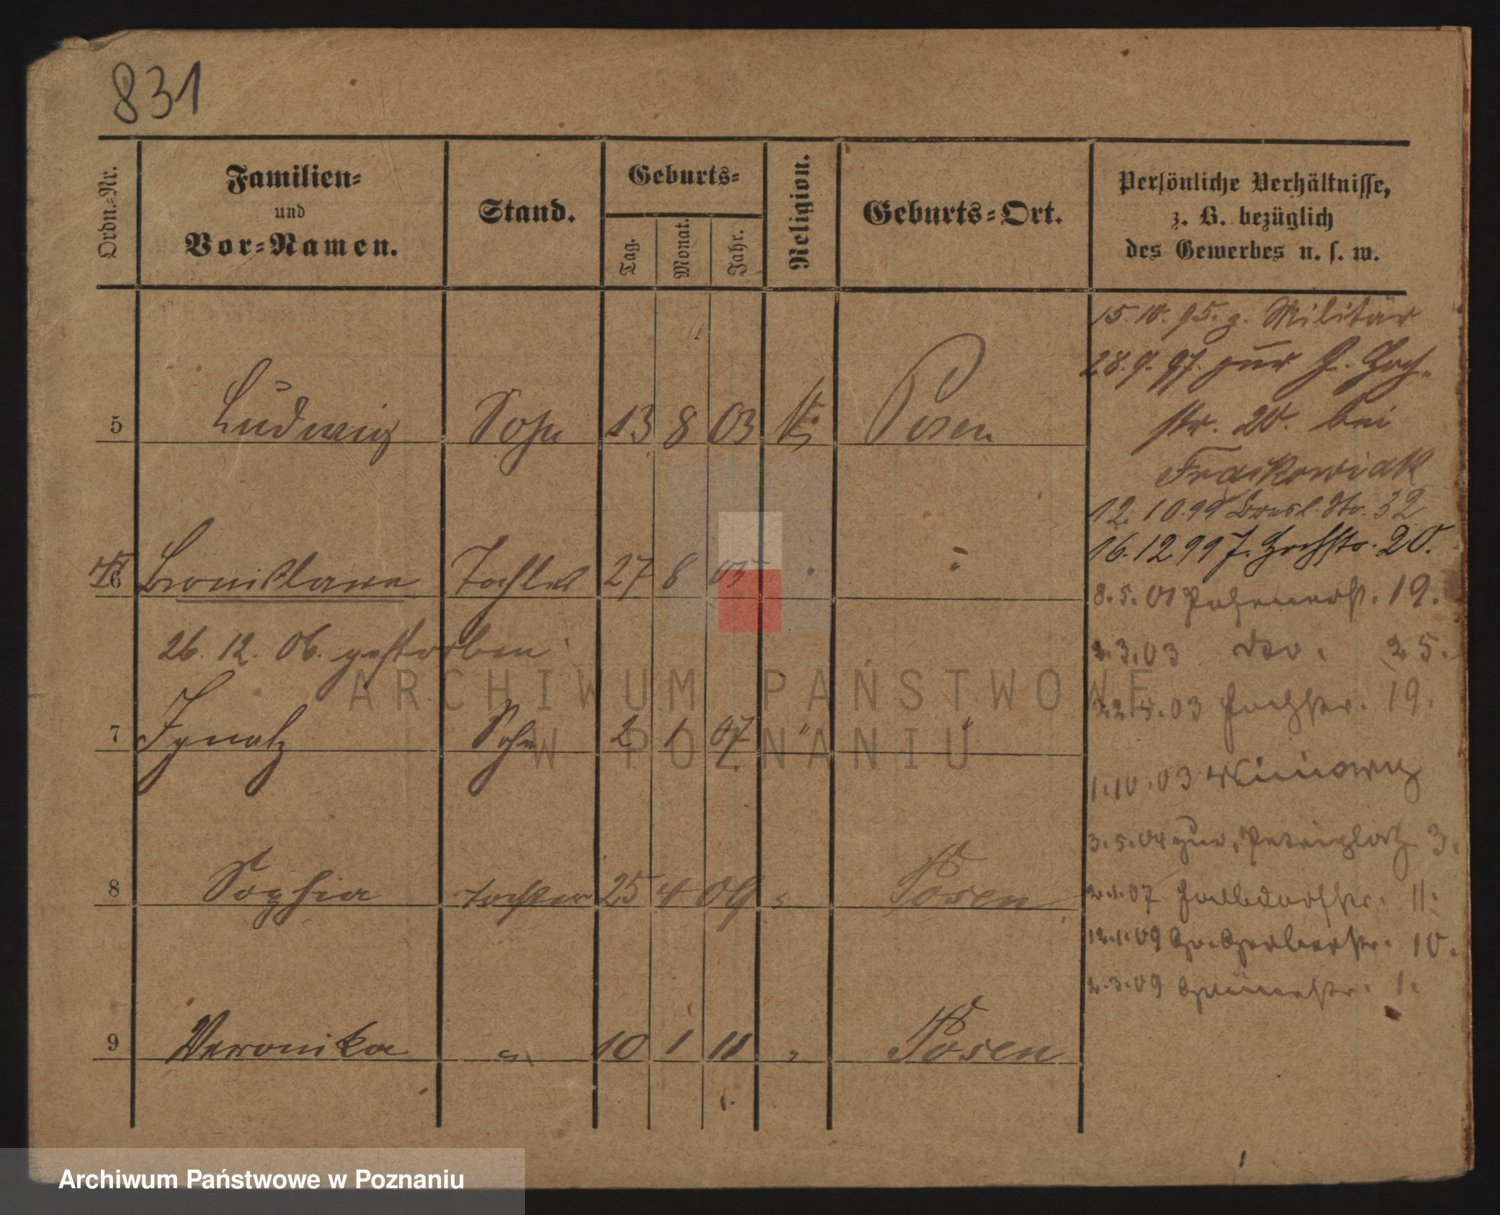 831
Ordn.-Nr.
Familien-
und
Vor-Namen.
Stand.
Geburts-
Tag.
Monat.
Jahr.
Religion.
Geburts-Ort.
Persönliche Verhältnisse,
z. B. bezüglich
des Gewerbes u. s. w.
5 Ludwig Sohn 13 8 03 Posen
6 Bronislawa Tochter 27 8 05 "
26. 12. 06. gestorben
7 Ignatz Sohn 2 1 07 " "
8 Sophia Tochter 25 4 09 " Posen
9 Veronika " 10 1 11 " Posen
15. 10. 95. z. Militär
28. 9. 97. zur F. Hoch-
str. 20. bei
Fraskowiak
12. 10. 99 Bresl. Str. 32
16. 12 99 F. Hochstr. 20.
8. 5. 01 19.
2. 3. 03 do. 25.
03 19.
1. 10. 03
3. 5. 04 zur. Petriplatz 3.
07 Halbdorfstr. 11.
12. 1. 09 Gr. Gerberstr. 10.
2. 3. 09 Grünestr. 1.
ARCHIWUM PAŃSTWOWE
W POZNANIU
Archiwum Państwowe w Poznaniu